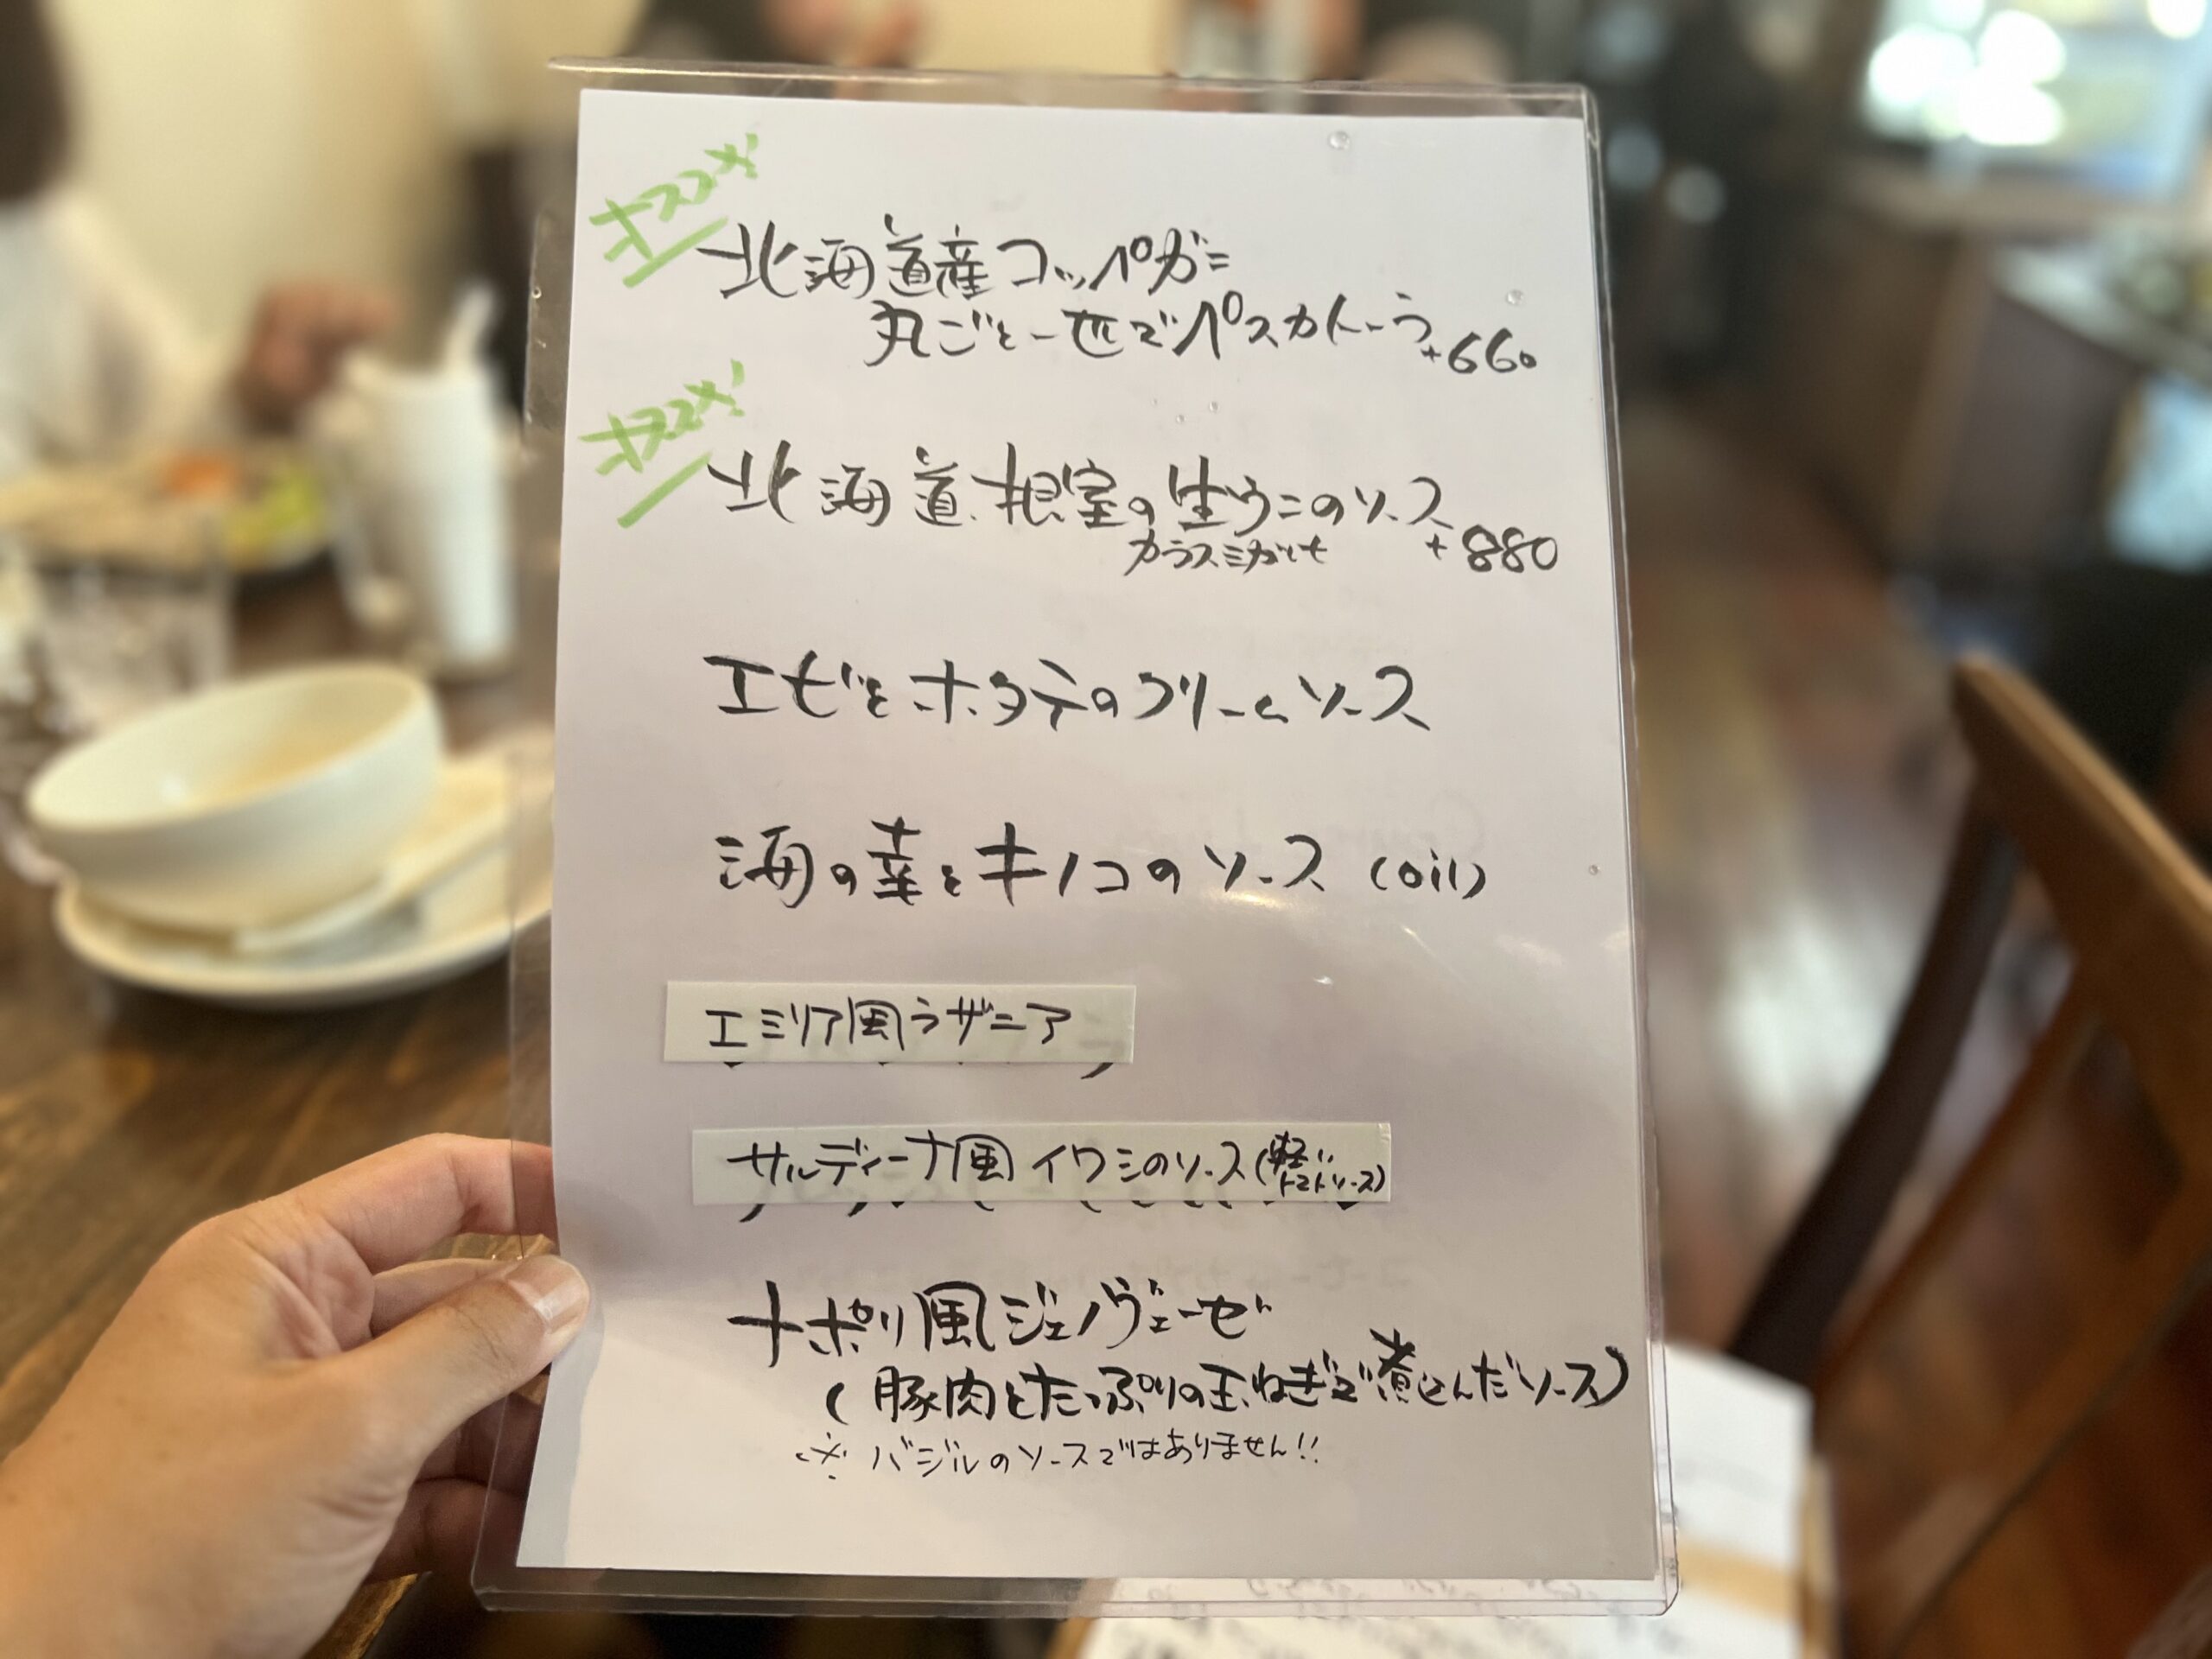 オススメ!
北海道産コッペガニ
丸ごと一匹でペスカトーラ +660
オススメ!
北海道根室の生ウニのソース
カラスミがけ +880
エビとホタテのクリームソース
海の幸とキノコのソース (oil)
エミリア風ラザニア
サルディーナ風イワシのソース(軽いトマトソース)
ナポリ風ジェノヴェーゼ
(豚肉とたっぷりの玉ねぎで煮込んだソース)
※バジルのソースではありません!!